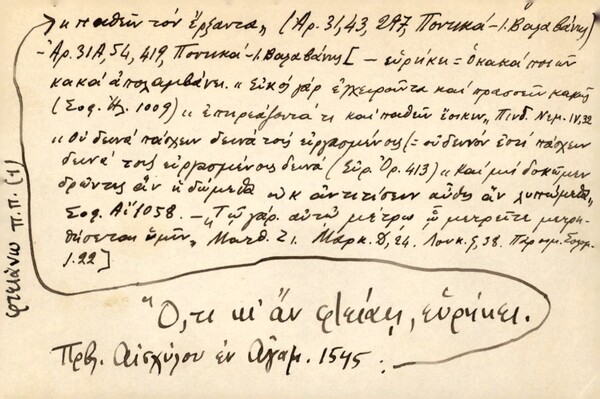 «παθεῖν τόν ἔρξαντα» (Ἀρ. 31,43, 297, Ποντικά - Ι. Βαλαβάνης)
- Ἀρ. 31Α, 54, 419, Ποντικά - Ι. Βαλαβάνης [ - εὑρήκῃ = ὁ κακά ποιῶν
κακά ἀπολαμβάνει. « Εἰκός γάρ ἐγχειροῦντα καί πράσσειν κακῶς
(Σοφ. Ἠλ. 1009) « ἐπηρεάζοντά τι καί παθεῖν ἔοικεν» Πινδ. Νεμ. IV, 32
« Οὐ δεινά πάσχειν δεινά τούς εἰργασμένους (= οὐ δεινόν ἐστί πάσχειν
δεινά τούς εἰργασμένους δεινά (Εὐρ. Ὀρ. 413) « Καί μή δοκῶμεν
δρῶντες ἄν ἡδώμεθα οὐκ ἀντιτίσειν αὖθις ἄν λυπώμεθα»
Σοφ. Αἴ 1058. - „Τῷ γάρ αὐτῷ μέτρῳ ᾧ μετρεῖτε μετρη-
θήσεται ὑμῖν„ Ματθ. Ζ 1. Μάρκ. Δ, 24. Λουκ. ς, 38.
1.22 ]
φτειάνω π.π. (1)
Ὅ,τι κι' ἄν φτειάῃς, εὑρήκει.
Πρβλ. Αἰσχύλου ἐν Ἀγαμ. 1545 :